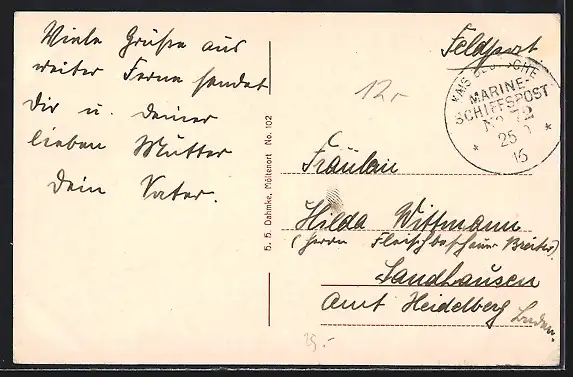 Viele Grüße aus
weiter Ferne sendet
Dir u. deiner
lieben Mutter
Dein Vater.
H. H. Dahmke, Möltenort No. 102
Feldpost
12,-
KAIS. DEUTSCHE
MARINE-
SCHIFFSPOST
No 72
* 25 *
15
Fräulein
Hilda Wittmann
(Herrn Fleischbeschauer Breiter)
Sandhausen
Amt Heidelberg
Baden.